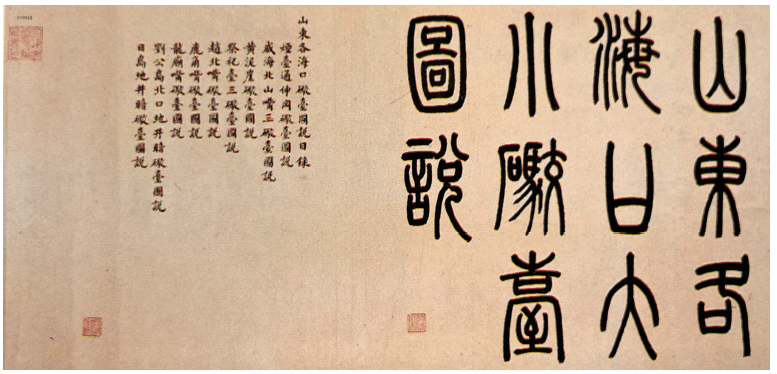 山東各
海口大
小礮臺
圖說
山東各海口礮臺圖說目錄
煙臺通伸岡礮臺圖說
威海北山嘴三礮臺圖說
黃泥崖礮臺圖說
祭祀臺三礮臺圖說
趙北嘴礮臺圖說
鹿角嘴礮臺圖說
龍廟嘴礮臺圖說
劉公島北口地井暗礮臺圖說
日島地井暗礮臺圖說